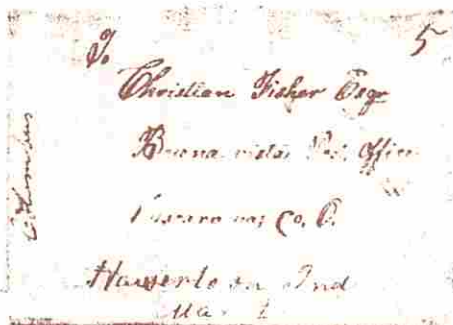 To
5
Christian Fisher Esqr
Buena vista Post Office
Tuscarawas Co. O.
Ind